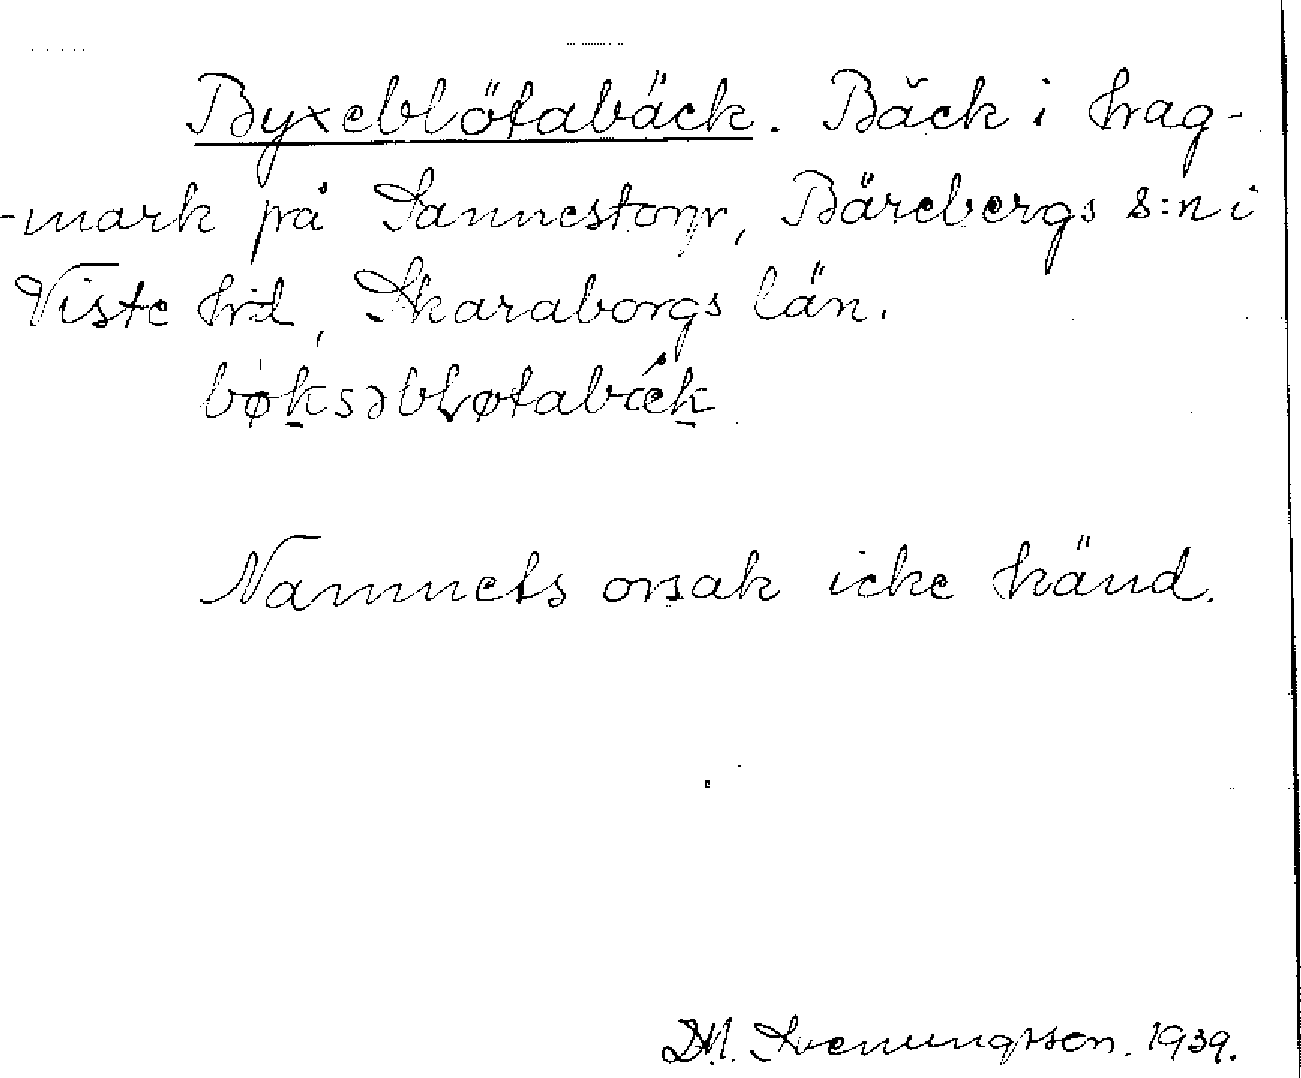 Byxeblötabäck. Bäck i hag-
-mark på Sannestorp, Bärebergs s:n i
Viste hd, Skaraborgs län.
bøksəbLøtabæk
Namnets orsak icke känd.
D.M. Svenungsson. 1939.